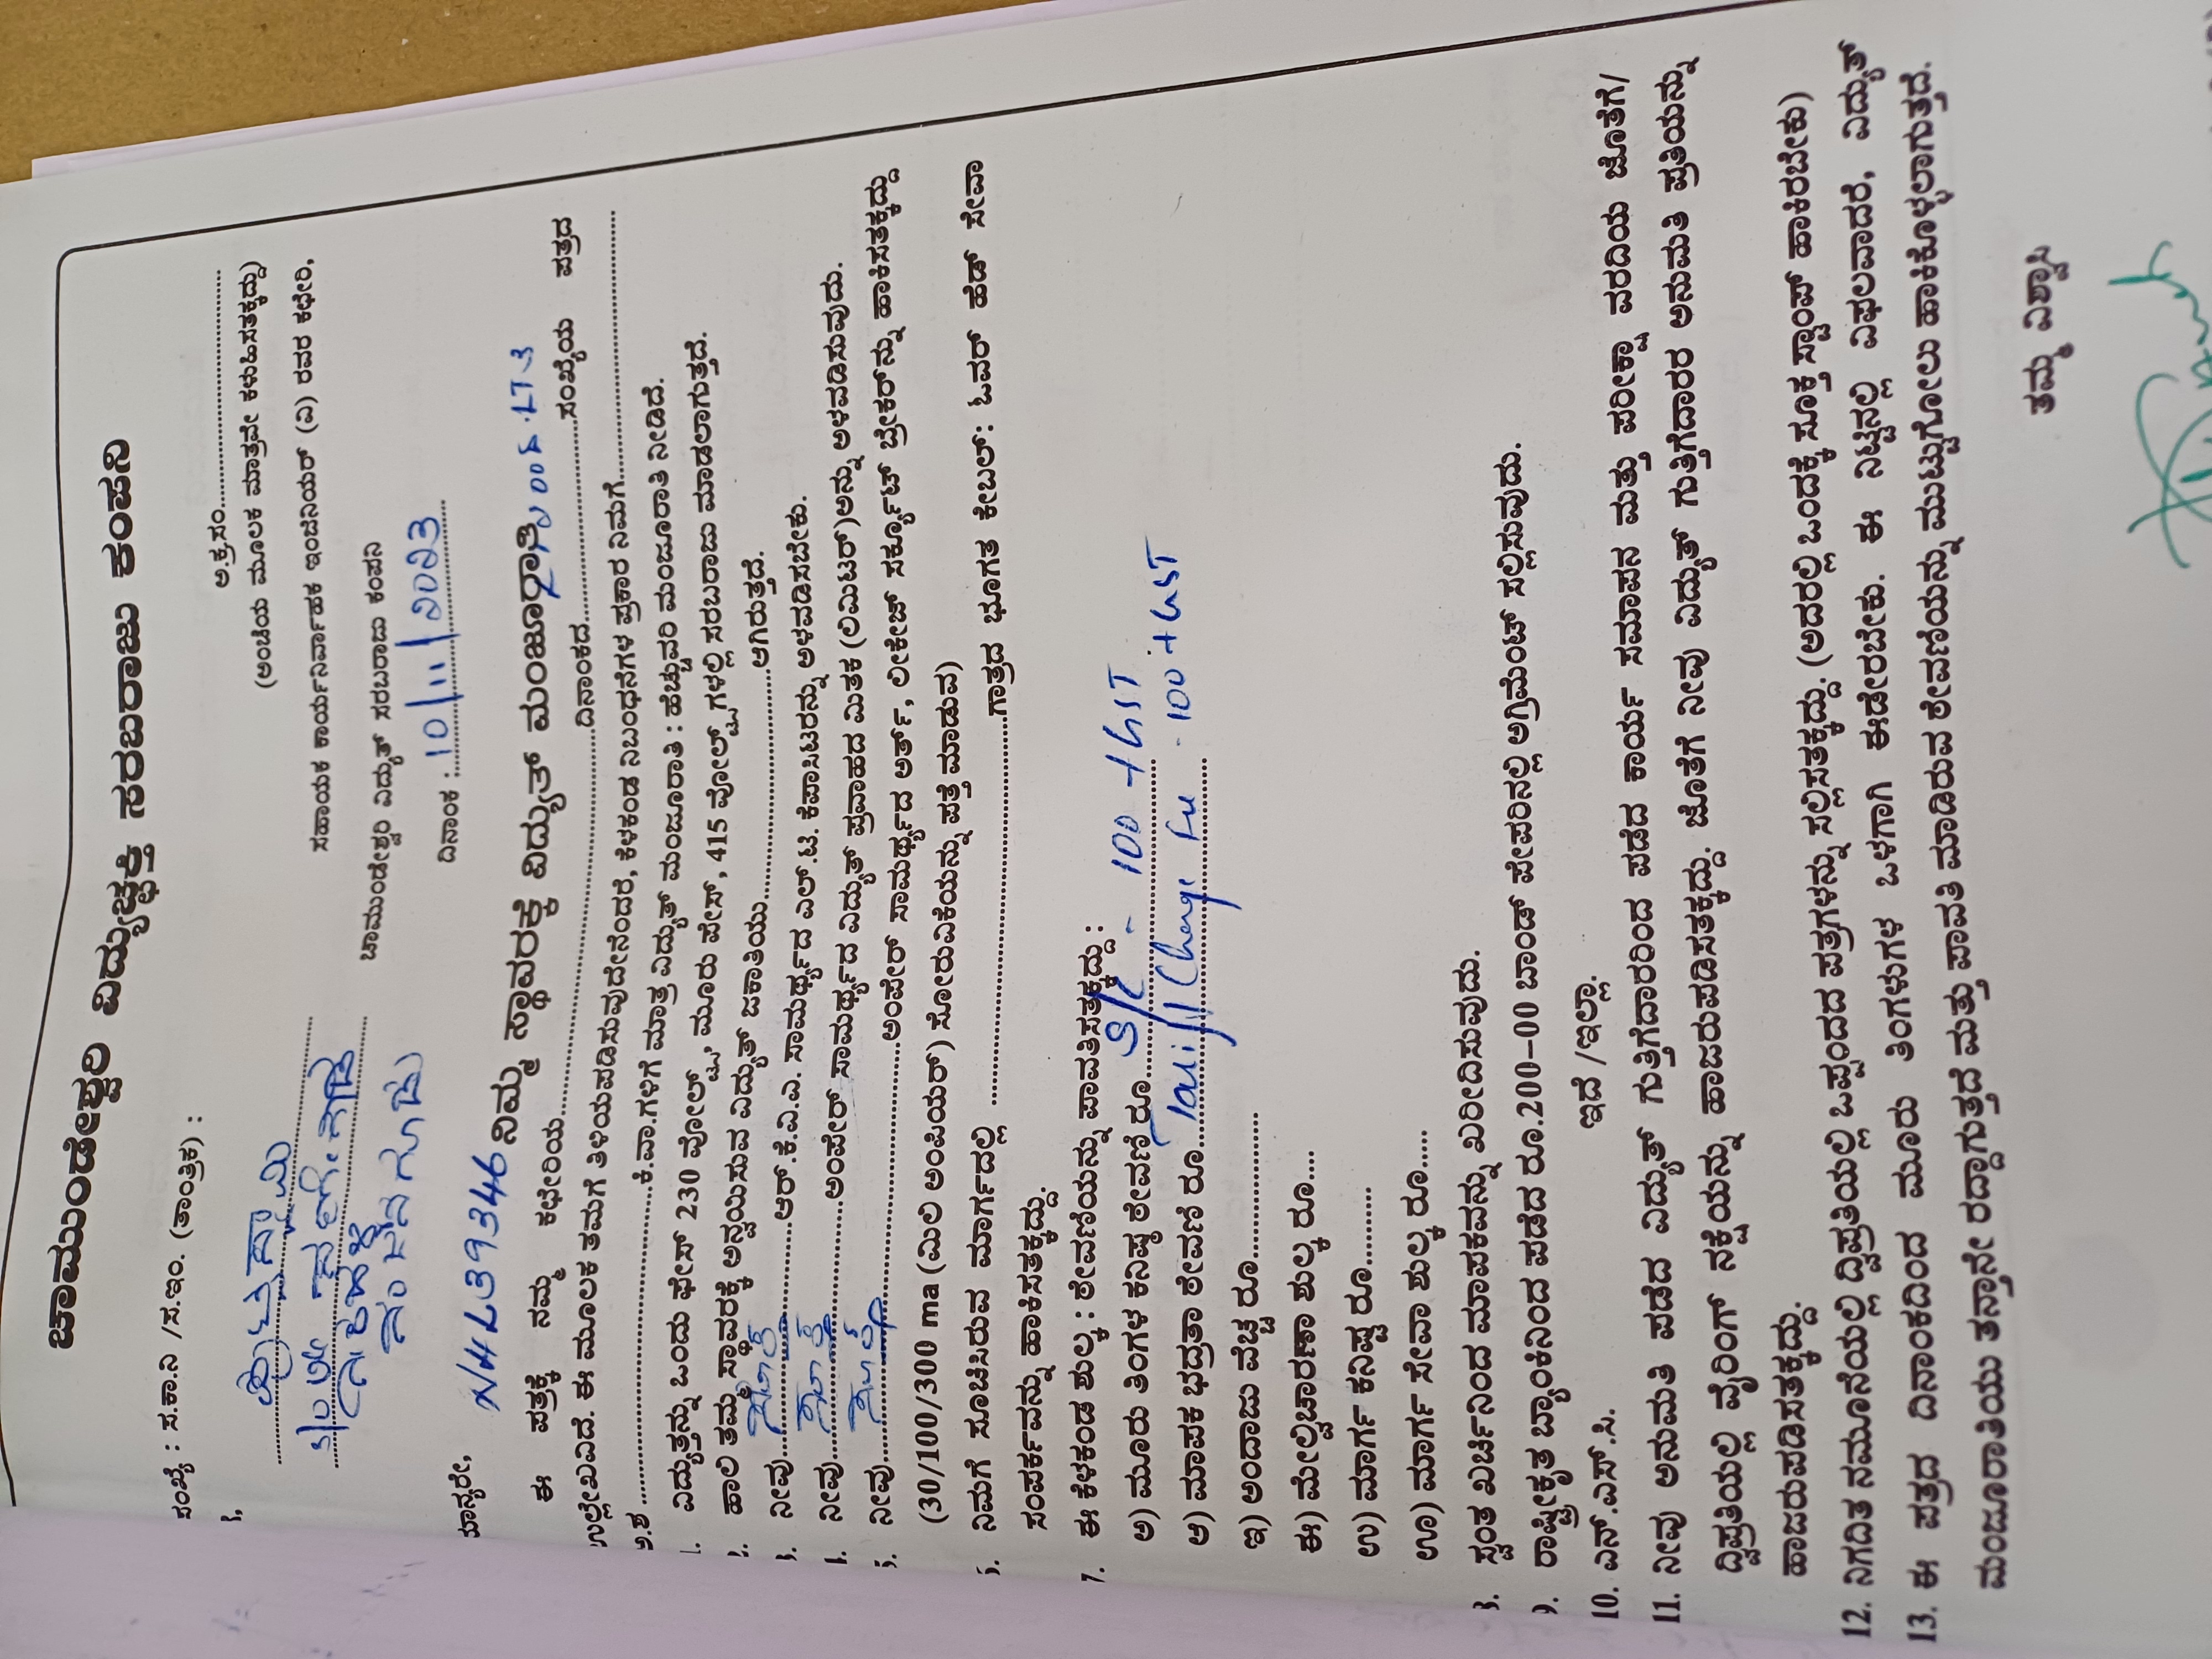 ಚಾಮುಂಡೇಶ್ವರಿ ವಿದ್ಯುಚ್ಛಕ್ತಿ ಸರಬರಾಜು ಕಂಪನಿ
ಸಂಖ್ಯೆ : ಸ.ಕಾ.ನಿ /ಸ.ಇಂ. (ತಾಂತ್ರಿಕ) :
ಅ.ಕ್ರ.ಸಂ.
(ಅಂಚೆಯ ಮೂಲಕ ಮಾತ್ರವೇ ಕಳುಹಿಸತಕ್ಕದ್ದು)
ಸಹಾಯಕ ಕಾರ್ಯನಿರ್ವಾಹಕ ಇಂಜಿನಿಯರ್ (ವಿ) ರವರ ಕಛೇರಿ,
ಚಾಮುಂಡೇಶ್ವರಿ ವಿದ್ಯುತ್ ಸರಬರಾಜು ಕಂಪನಿ
ದಿನಾಂಕ : 10/11/2023
ಮಾನ್ಯರೇ,
NHL39346 ನಿಮ್ಮ ಸ್ಥಾವರಕ್ಕೆ ವಿದ್ಯುತ್ ಮಂಜೂರಾತಿ LT-3
ಈ ಪತ್ರಕ್ಕೆ ನಮ್ಮ ಕಛೇರಿಯ ದಿನಾಂಕದ ಸಂಖ್ಯೆಯ ಪತ್ರದ
ಉಲ್ಲೇಖವಿದೆ. ಈ ಮೂಲಕ ತಮಗೆ ತಿಳಿಯಪಡಿಸುವುದೇನೆಂದರೆ, ಕೆಳಕಂಡ ನಿಬಂಧನೆಗಳ ಪ್ರಕಾರ ನಿಮಗೆ
ಅ.ಶ ಕಿ.ವಾ.ಗಳಿಗೆ ಮಾತ್ರ ವಿದ್ಯುತ್ ಮಂಜೂರಾತಿ : ಹೆಚ್ಚುವರಿ ಮಂಜೂರಾತಿ ನೀಡಿದೆ.
1. ವಿದ್ಯುತ್ತನ್ನು ಒಂದು ಫೇಸ್ 230 ವೋಲ್ಟ್, ಮೂರು ಫೇಸ್, 415 ವೋಲ್ಟ್‌ಗಳಲ್ಲಿ ಸರಬರಾಜು ಮಾಡಲಾಗುತ್ತದೆ.
2. ಹಾಲಿ ತಮ್ಮ ಸ್ಥಾವರಕ್ಕೆ ಅನ್ವಯಿಸುವ ವಿದ್ಯುತ್ ಜಕಾತಿಯು ಆಗಿರುತ್ತದೆ.
3. ನೀವು ಆರ್.ಕೆ.ವಿ.ಎ. ಸಾಮರ್ಥ್ಯದ ಎಲ್.ಟಿ. ಕೆಪಾಸಿಟರನ್ನು ಅಳವಡಿಸಬೇಕು.
4. ನೀವು ಅಂಪೇರ್ ಸಾಮರ್ಥ್ಯದ ವಿದ್ಯುತ್ ಪ್ರವಾಹದ ಮಿತಕ (ಲಿಮಿಟರ್)ಅನ್ನು ಅಳವಡಿಸುವುದು.
5. ನೀವು ಅಂಪೇರ್ ಸಾಮರ್ಥ್ಯದ ಅರ್ತ್, ಲೀಕೇಜ್ ಸರ್ಕ್ಯೂಟ್ ಬ್ರೇಕರ್‌ನ್ನು ಹಾಕಿಸತಕ್ಕದ್ದು
(30/100/300 ma (ಮಿಲಿ ಅಂಪಿಯರ್) ಸೋರುವಿಕೆಯನ್ನು ಪತ್ತೆ ಮಾಡುವ)
6. ನಿಮಗೆ ಸೂಚಿಸಿರುವ ಮಾರ್ಗದಲ್ಲಿ ಗಾತ್ರದ ಭೂಗತ ಕೇಬಲ್: ಓವರ್ ಹೆಡ್ ಸೇವಾ
ಸಂಪರ್ಕವನ್ನು ಹಾಕಿಸತಕ್ಕದ್ದು.
7. ಈ ಕೆಳಕಂಡ ಶುಲ್ಕ : ಠೇವಣಿಯನ್ನು ಪಾವತಿಸತಕ್ಕದ್ದು :
ಅ) ಮೂರು ತಿಂಗಳ ಕನಿಷ್ಠ ಠೇವಣಿ ರೂ S/C - 100 + GST
ಆ) ಮಾಪಕ ಭದ್ರತಾ ಠೇವಣಿ ರೂ Change - 100 + GST
ಇ) ಅಂದಾಜು ವೆಚ್ಚ ರೂ
ಈ) ಮೇಲ್ವಿಚಾರಣಾ ಶುಲ್ಕ ರೂ
ಉ) ಮಾರ್ಗ ಕನಿಷ್ಟ ರೂ
ಊ) ಮಾರ್ಗ ಸೇವಾ ಶುಲ್ಕ ರೂ
8. ಸ್ವಂತ ಖರ್ಚಿನಿಂದ ಮಾಪಕವನ್ನು ಖರೀದಿಸುವುದು.
9. ರಾಷ್ಟ್ರೀಕೃತ ಬ್ಯಾಂಕಿನಿಂದ ಪಡೆದ ರೂ.200-00 ಬಾಂಡ್ ಪೇಪರಿನಲ್ಲಿ ಅಗ್ರಿಮೆಂಟ್ ಸಲ್ಲಿಸುವುದು.
10. ಎನ್.ಎಸ್.ಸಿ. ಇದೆ /ಇಲ್ಲಾ.
11. ನೀವು ಅನುಮತಿ ಪಡೆದ ವಿದ್ಯುತ್ ಗುತ್ತಿಗೆದಾರರಿಂದ ಪಡೆದ ಕಾರ್ಯ ಸಮಾಪನ ಮತ್ತು ಪರೀಕ್ಷಾ ವರದಿಯ ಜೊತೆಗೆ/
ದ್ವಿಪ್ರತಿಯಲ್ಲಿ ವೈರಿಂಗ್ ನಕ್ಷೆಯನ್ನು ಹಾಜರುಪಡಿಸತಕ್ಕದ್ದು. ಜೊತೆಗೆ ನೀವು ವಿದ್ಯುತ್ ಗುತ್ತಿಗೆದಾರರ ಅನುಮತಿ ಪ್ರತಿಯನ್ನು
ಹಾಜರುಪಡಿಸತಕ್ಕದ್ದು.
12. ನಿಗದಿತ ನಮೂನೆಯಲ್ಲಿ ದ್ವಿಪ್ರತಿಯಲ್ಲಿ ಒಪ್ಪಂದದ ಪತ್ರಗಳನ್ನು ಸಲ್ಲಿಸತಕ್ಕದ್ದು. (ಅದರಲ್ಲಿ ಒಂದಕ್ಕೆ ಸೂಕ್ತ ಸ್ಟಾಂಪ್ ಹಾಕಿರಬೇಕು)
13. ಈ ಪತ್ರದ ದಿನಾಂಕದಿಂದ ಮೂರು ತಿಂಗಳುಗಳ ಒಳಗಾಗಿ ಈಡೇರಬೇಕು. ಈ ನಿಟ್ಟಿನಲ್ಲಿ ವಿಫಲವಾದರೆ, ವಿದ್ಯುತ್
ಮಂಜೂರಾತಿಯು ತನ್ತಾನೇ ರದ್ದಾಗುತ್ತದೆ ಮತ್ತು ಪಾವತಿ ಮಾಡಿರುವ ಠೇವಣಿಯನ್ನು ಮುಟ್ಟುಗೋಲು ಹಾಕಿಕೊಳ್ಳಲಾಗುತ್ತದೆ.
ತಮ್ಮ ವಿಶ್ವಾಸಿ